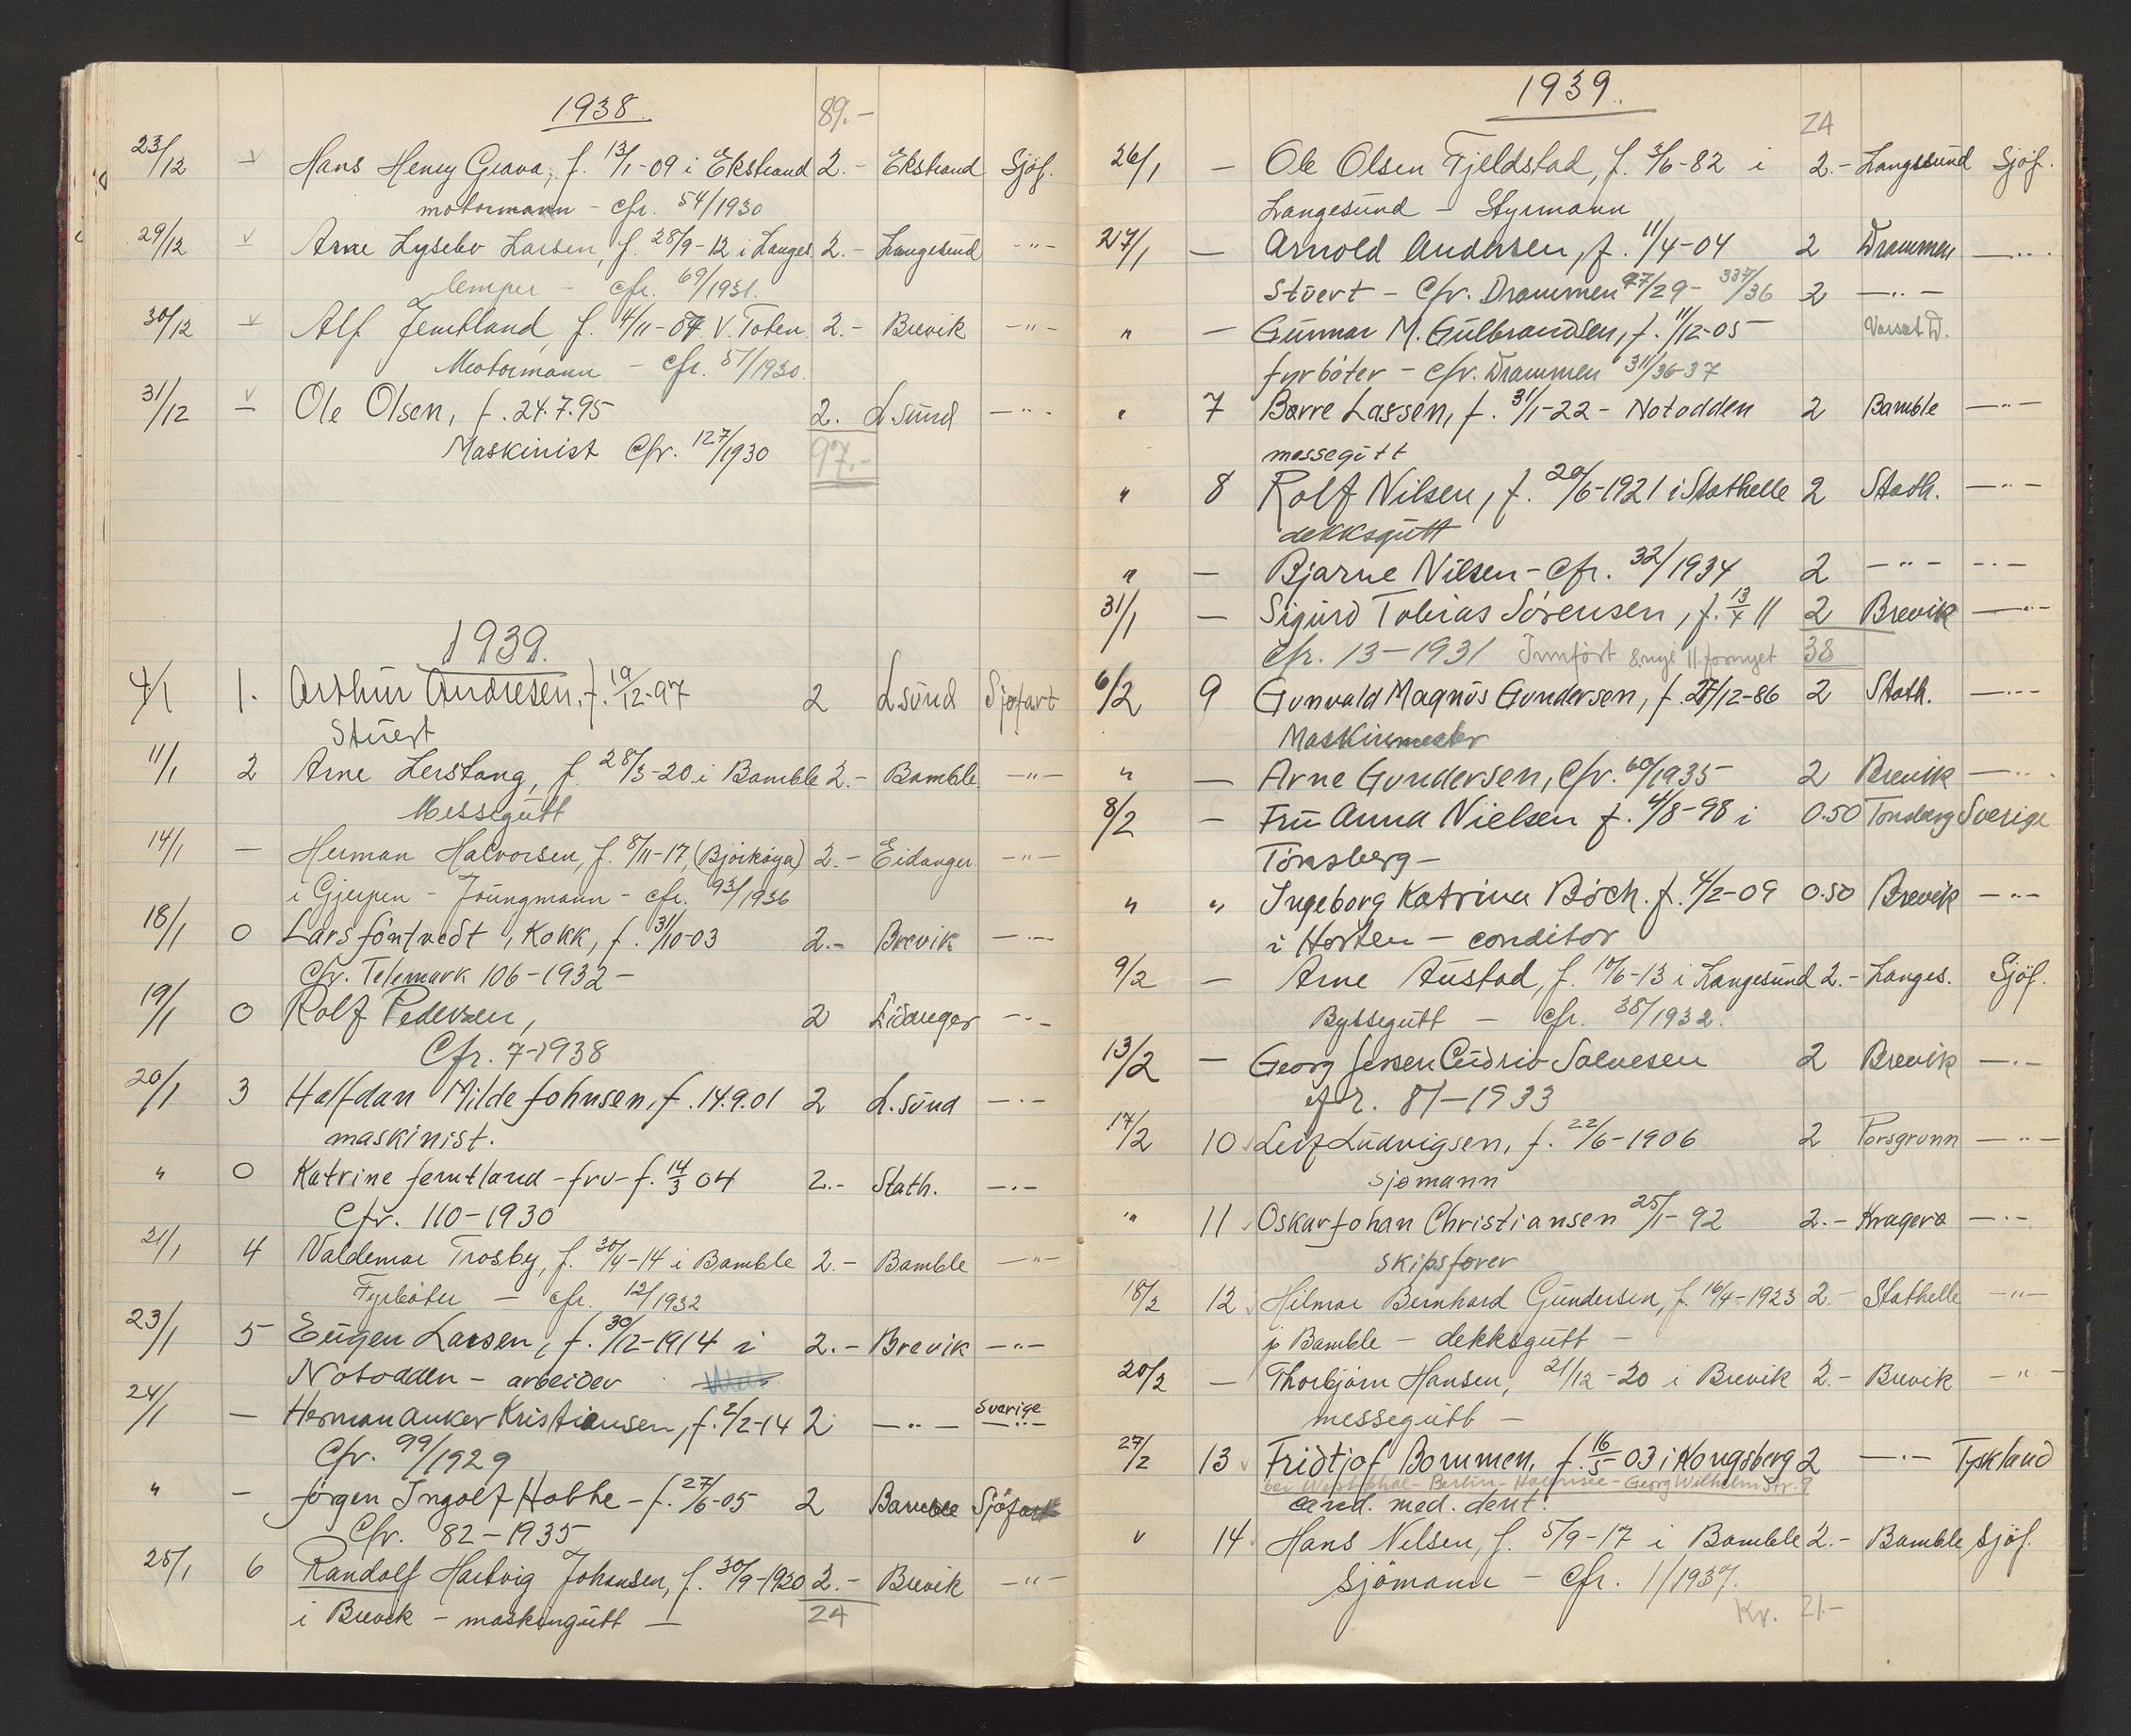 1938. 89.-
23/12 - Hans Henry Grava, f. 13/1-09 i Ekstrand 2.- Ekstrand Sjöf.
motormann - cfr. 54/1930
29/12 Arne Lysebo Larsen, f. 28/9-12 i Langes. 2.- Langesund -"-
Lemper - cfr. 69/1931.
30/12 Alf Jemtland, f. 4/11-04 V. Toten 2.- Brevik -"-
Motormann - cfr. 51/1930.
31/12 - Ole Olsen, f. 24.7.95 2. L.sund -"-
Maskinist Cfr. 127/1930 97.-
1939.
4/1 1. Arthur Andresen, f. 19/12-97 2 L.sund Sjøfart
Stuert
11/1 2 Arne Lerstang, f. 28/3-20 i Bamble 2.- Bamble -"-
Messegutt
14/1 - Herman Halvorsen, f. 8/11-17, (Björkøya) 2.- Eidanger -"-
i Gjerpen - Joungmann - cfr. 93/1936
18/1 0 Lars Jöntvedt, Kokk, f. 31/10-03 2.- Brevik -"-
Cfr. Telemark 106-1932-
19/1 0 Rolf Pedersen, 2 Eidanger -"-
Cfr. 7-1938
20/1 3 Halfdan Milde Johnsen, f. 14.9.01 2 L.sund -"-
maskinist.
" 0 Katrine Jemtland - fru - f. 14/3 04 2.- Stath. -"-
Cfr. 110-1930
21/1 4 Valdemar Trosby, f. 30/4-14 i Bamble 2.- Bamble -"-
Fyrböter - cfr. 12/1932
23/1 5 Eugen Larsen, f. 30/12-1914 i 2.- Brevik -"-
Notodden - arbeider
24/1 - Herman Anker Kristiansen, f. 2/2-14 2 -"- Sverige -"-
Cfr. 99/1929
" - Jörgen Ingolf Holthe - f. 27/6-05 2 Bamble Sjöfart
Cfr. 82-1935
25/1 6 Randolf Hartvig Johansen, f. 30/9-1920 2.- Brevik -"-
i Brevik - maskingutt - 24
1939.
24
26/1 - Ole Olsen Fjeldstad, f. 3/6-82 i 2.- Langesund Sjöf.
Langesund - Styrmann
27/1 - Arnold Andersen, f. 11/4-04 2 Drammen -"-
Stuert - Cfr. Drammen 97/29 - 337/36 2 -"-
" - Gunnar M. Gulbrandsen, f. 11/12-05
fyrböter - Cfr. Drammen 311/36-37
" 7 Børre Lassen, f. 31/1-22 - Notodden 2 Bamble -"-
messegutt
" 8 Rolf Nilsen, f. 20/6-1921 i Stathelle 2 Stath. -"-
dekksgutt
" - Bjarne Nilsen - Cfr. 32/1934 2 -"- -"-
31/1 - Sigurd Tobias Sörensen, f. 13/4 11 2 Brevik -"-
Cfr. 13-1931 Innfört 8 nye 11 fornyet 38
6/2 9 Gunvald Magnus Gundersen, f. 27/12-86 2 Stath. -"-
Maskinmester
" - Arne Gundersen, Cfr. 60/1935 2 Brevik -"-
8/2 - Fru Anna Nielsen f. 4/8-98 i 0.50 Tonsberg Sverige
Tönsberg -
" " Ingeborg Katrine Böch. f. 4/2-09 0.50 Brevik -"-
i Horten - conditor
9/2 - Arne Austad, f. 10/6-13 i Langesund 2.- Langes. Sjöf.
Byssegutt - cfr. 38/1932.
13/2 - Georg Jensen Salvesen 2 Brevik -"-
cfr. 81-1933
17/2 10 Leif Ludvigsen, f. 22/6-1906 2 Porsgrunn -"-
Sjømann
" 11 Oskar Johan Christiansen 25/1-92 2.- Kragerø -"-
Skipsfører
18/2 12 Hilmar Bernhard Gundersen, f. 16/4-1923 2.- Stathelle -"-
i Bamble - dekksgutt -
20/2 - Thorbjörn Hansen, 21/12-20 i Brevik 2.- Brevik -"-
messegutt -
27/2 13 Fridtjof Bommen, f. 16/5 03 i Kongsberg 2 -"- Tyskland
bei Westphal - Berlin - Halensee - Georg Wilhelmstr. 9
cand. med. dent.
" 14 Hans Nilsen, f. 5/9-17 i Bamble 2.- Bamble Sjöf.
Sjömann - cfr. 1/1937.
Kr. 21.-